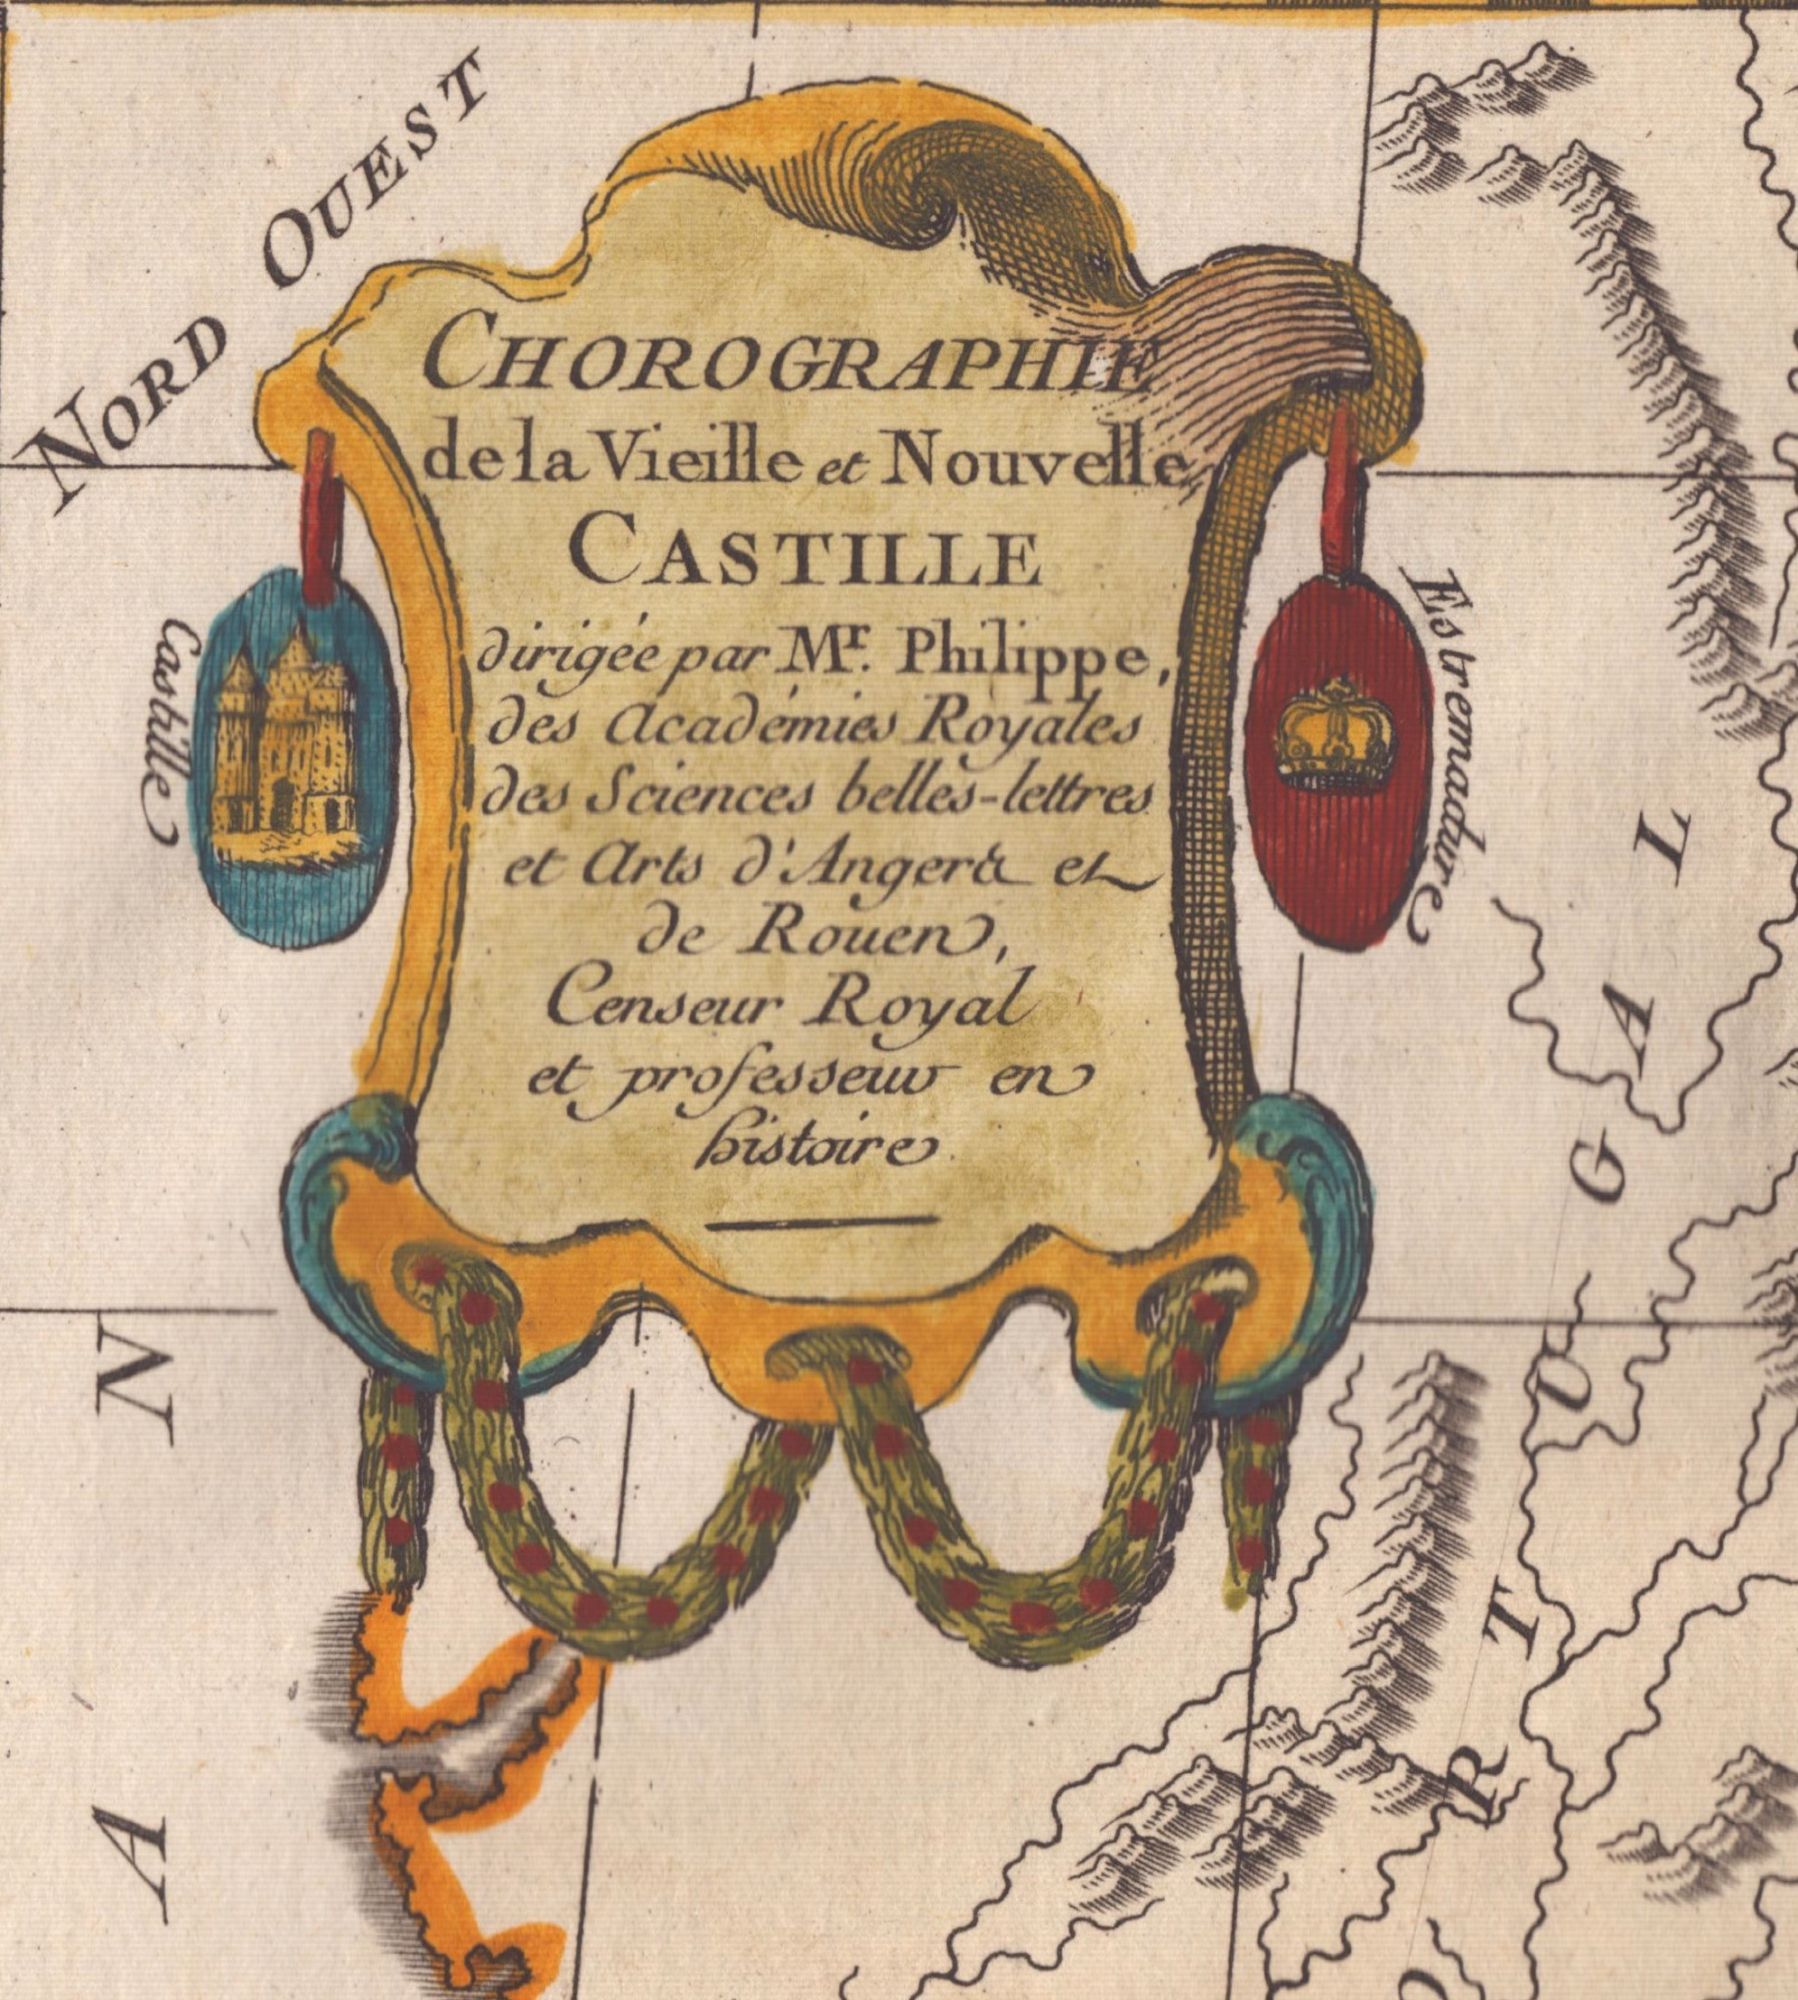 NORD OUEST
CHOROGRAPHIE
de la Vieille et Nouvelle
CASTILLE
dirigée par Mr. Philippe,
des Académies Royales
des Sciences belles-lettres
et Arts d'Angers et
de Rouen,
Censeur Royal
et professeur en
histoire
Castille
Estremadure
PORTUGAL
AN